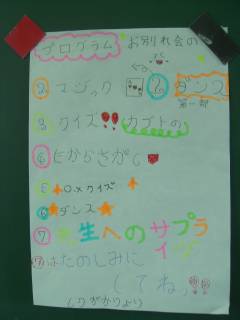 お別れ会の
プログラム
②マジック ①ダンス
第一部
③クイズ!!カブトの
④たからさがし
⑤○×クイズ
⑥ダンス
⑦先生へのサプライズ
⑦はたのしみに
してねっ!!